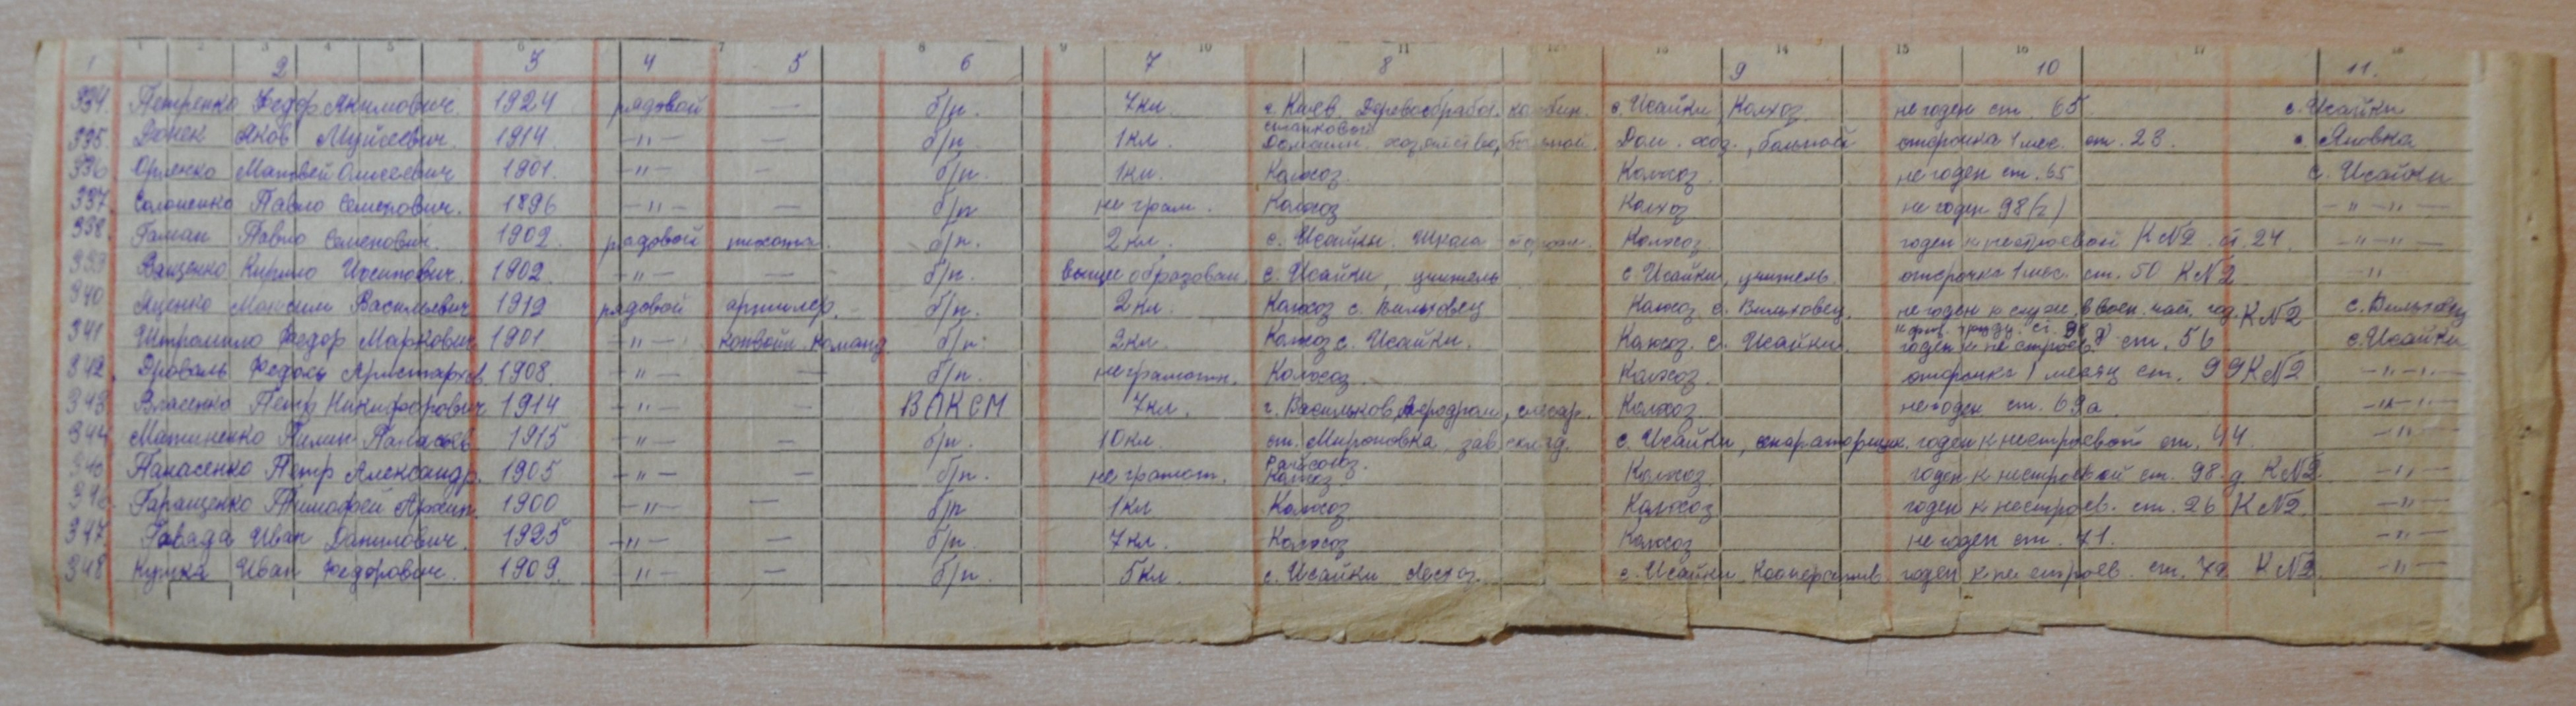 1 2 3 4 5 6 7 8 9 10 11 12 13 14 15 16 17 18
1 2 3 4 5 6 7 8 9 10 11.
334. Петренко Федор Акимович 1924 рядовой — б/п. 7кл. г. Киев. Деревообработ. комбин. с. Исайки, Колхоз. не годен ст 65. с. Исайки
станковой
335. Яков Мусиевич. 1914 —"— — б/п 1кл. Домашн. хозяйство, больной. Дом. хоз., больной отсрочка 1 мес. ст. 23. с. Яновка
336 Матвей Олексеевич 1901. —"— – б/п. 1кл. Колхоз. Колхоз. не годен ст. 65 с. Исайки
337. Солоненко Павло Семенович. 1896 —"— — б/п не грам. Колхоз Колхоз не годен 98(г) —"—"—
338. Гаман Павло Семенович. 1902. рядовой пихота. б/п. 2кл. с. Исайки. Школа Колхоз. годен к нестроевой К№2. ст. 24. —"—"—
339 Ващенко Кирило Иосипович. 1902. —"— — б/п. высшее образован. с. Исайки, учитель с Исайки, учитель. отсрочка 1 мес. ст. 50 К№2 —"
340 Яценко Максим Васильевич 1919 рядовой артилер. – б/п. 2кл. Колхоз с. Вильховец Колхоз с. Вильховец. не годен к служ. в воен. год. К№2 с. Вильховец
к физ. труду. ст. 98 д
341 Федор Маркович 1901 —"— конвойн. команд б/п. 2кл. Колхоз с. Исайки. Колхоз. с. Исайки. годен к не строев. ст. 56 с. Исайки
342. Дроваль Федось Аристархов. 1908. —"— — б/п. неграмотн. Колхоз. Колхоз. отсрочка 1 месяц ст. 99 К№2 —"—"—
343 Власенко Петр Никифорович 1914 —"— — ВЛКСМ 7кл. г. Васильков, Аеродром, слесар. Колхоз. не годен ст. 69а. —"—"—
344 Матиненко Пилип Панасов. 1915 —"— — б/п. 10кл. ст. Мироновка, зав склад. с. Исайки, сепараторщик. годен к нестроевой ст. 44. —"—
Райсоюз.
345 Панасенко Петр Александр. 1905 —"— — б/п. не грамот. Колхоз Колхоз. годен к нестроевой ст. 98. д. К№2. —"—
346. Гаращенко Тимофей Архип. 1900 —"— — б/п 1кл Колхоз. Колхоз годен к нестроев. ст. 26 К№2. —"—
347 Гавяда Иван Данилович. 1925 —"— — б/п. 7кл. Колхоз Колхоз не годен ст. 71. —"—
348 Куцка Иван Федорович. 1909. —"— — б/п. 5кл. с. Исайки Лесхоз с. Исайки, Кооператив. годен к не строев. ст. 7д К№2. —"—